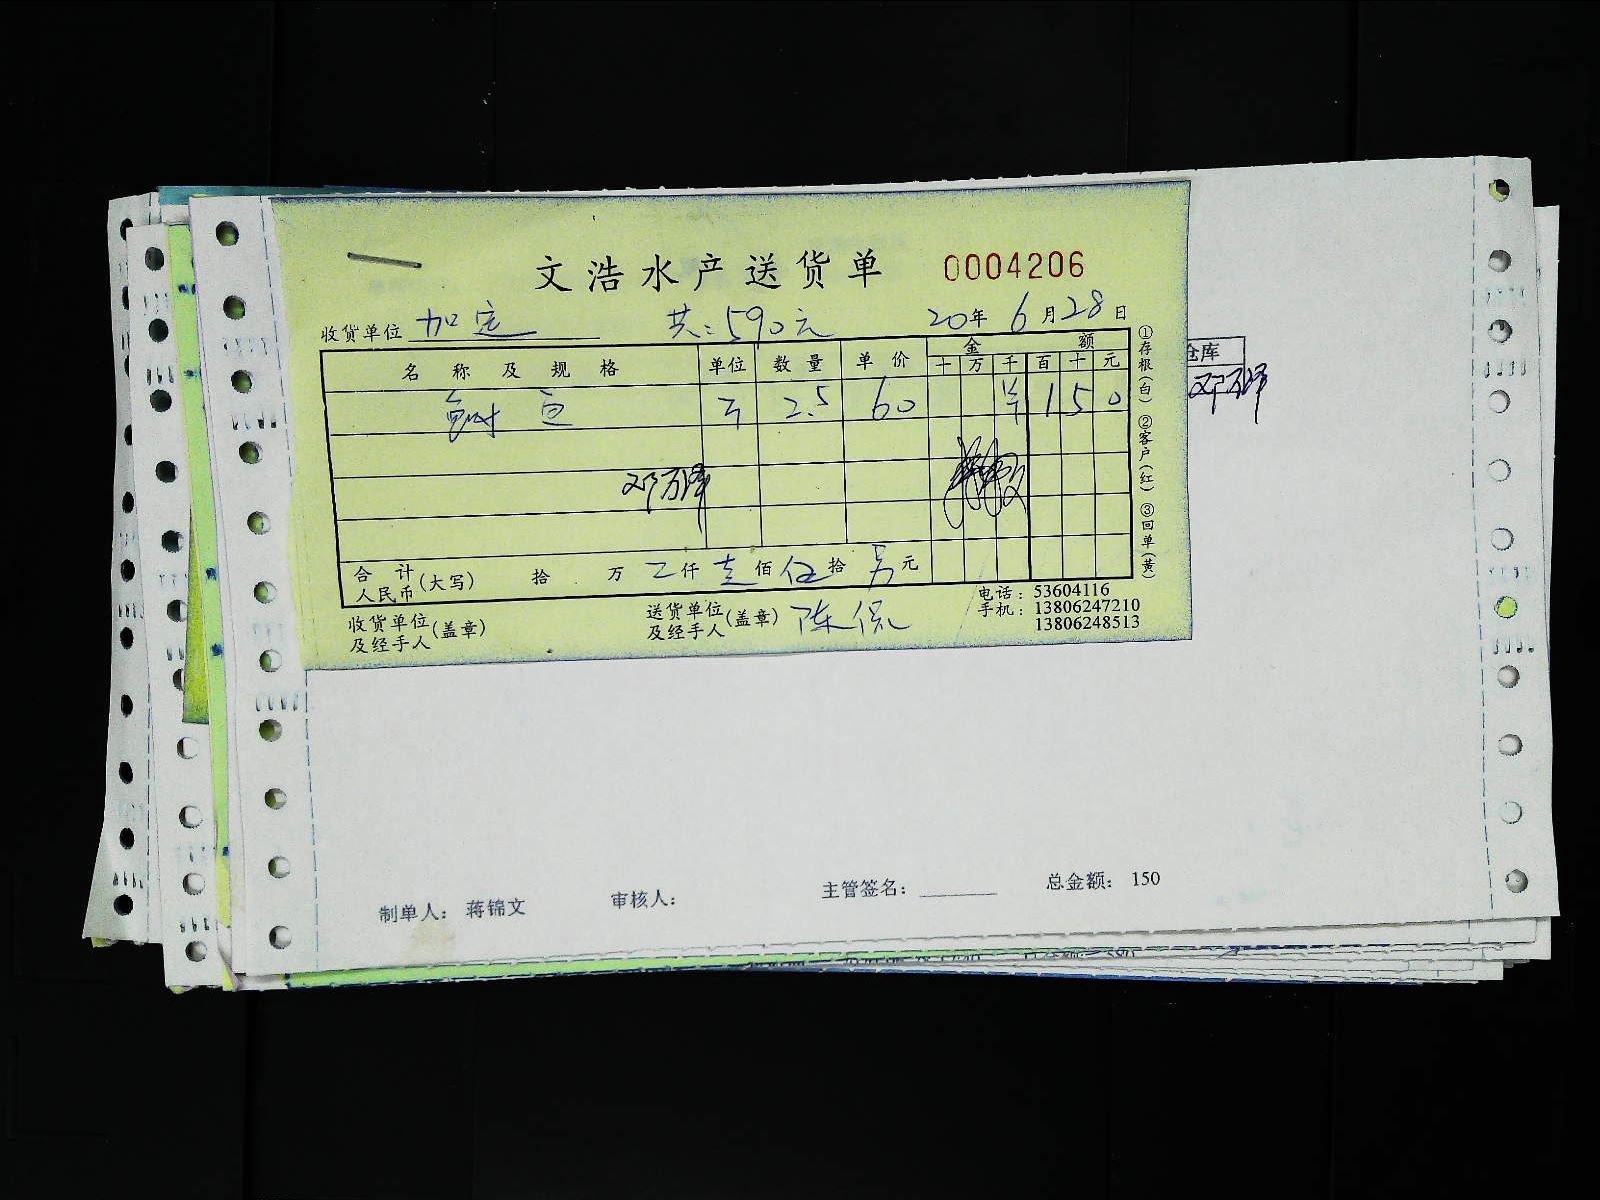 文浩水产送货单 0004206
收货单位 加定 共:590元 20年6月28日
名称及规格 单位 数量 单价 金额
十 万 千 百 十 元
2.5 60 ¥ 1 5 0
邓万泽
合计人民币(大写) 拾 万 仟 壹佰 伍拾 元
收货单位及经手人(盖章) 送货单位及经手人(盖章) 陈侃
电话:53604116
手机:13806247210
13806248513
①存根(白) ②客户(红) ③回单(黄)
仓库
邓万泽
制单人: 蒋锦文 审核人: 主管签名: 总金额: 150